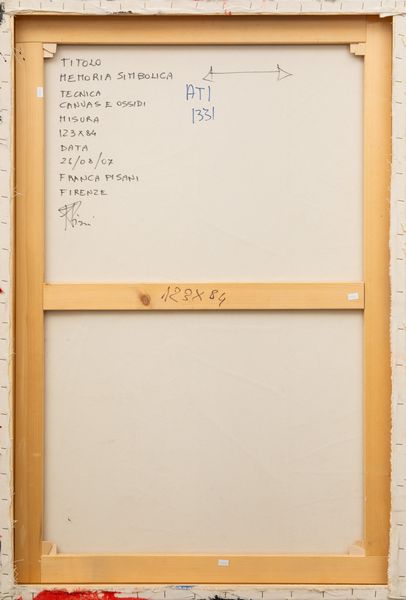 TITOLO
MEMORIA SIMBOLICA
TECNICA
CANVAS E OSSIDI
MISURA
123X84
DATA
26/08/07
FRANCA PISANI
FIRENZE
ATI
1331
123X84